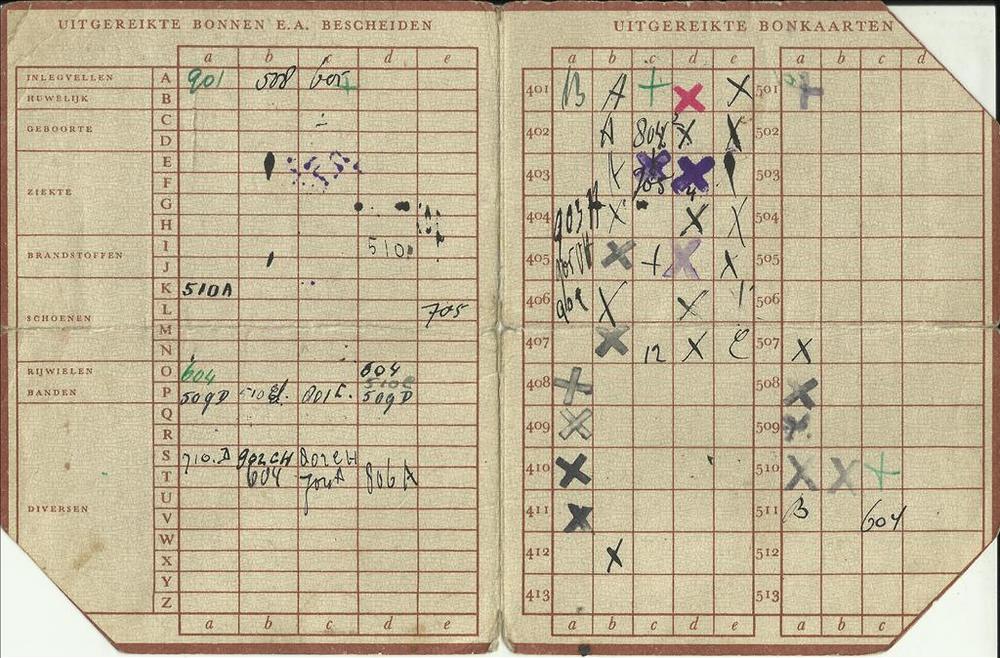 UITGEREIKTE BONNEN E.A. BESCHEIDEN
a b c d e
INLEGVELLEN A 901 508 605
HUWELIJK B
C
GEBOORTE D
E
F
ZIEKTE G
H
I 510
BRANDSTOFFEN J
K 510A
L 705
SCHOENEN M
N
RIJWIELEN O 604 604
510E
BANDEN P 509D 801E. 509D
Q
R
S 710.D 902CH 802CH
T 604 704A 806A
U
DIVERSEN V
W
X
Y
Z
a b c d e
UITGEREIKTE BONKAARTEN
a b c d e a b c d
401 B A + X X 501 +
402 A 804 X X 502
403 X 705 X 503
404 903H X X X 504
405 905DH X + X X 505
406 909 X X 506
407 X 12 X 507 X
408 X 508 X
409 X 509 X
410 X 510 X X +
411 X 511 B 604
412 X 512
413 513
a b c d e a b c